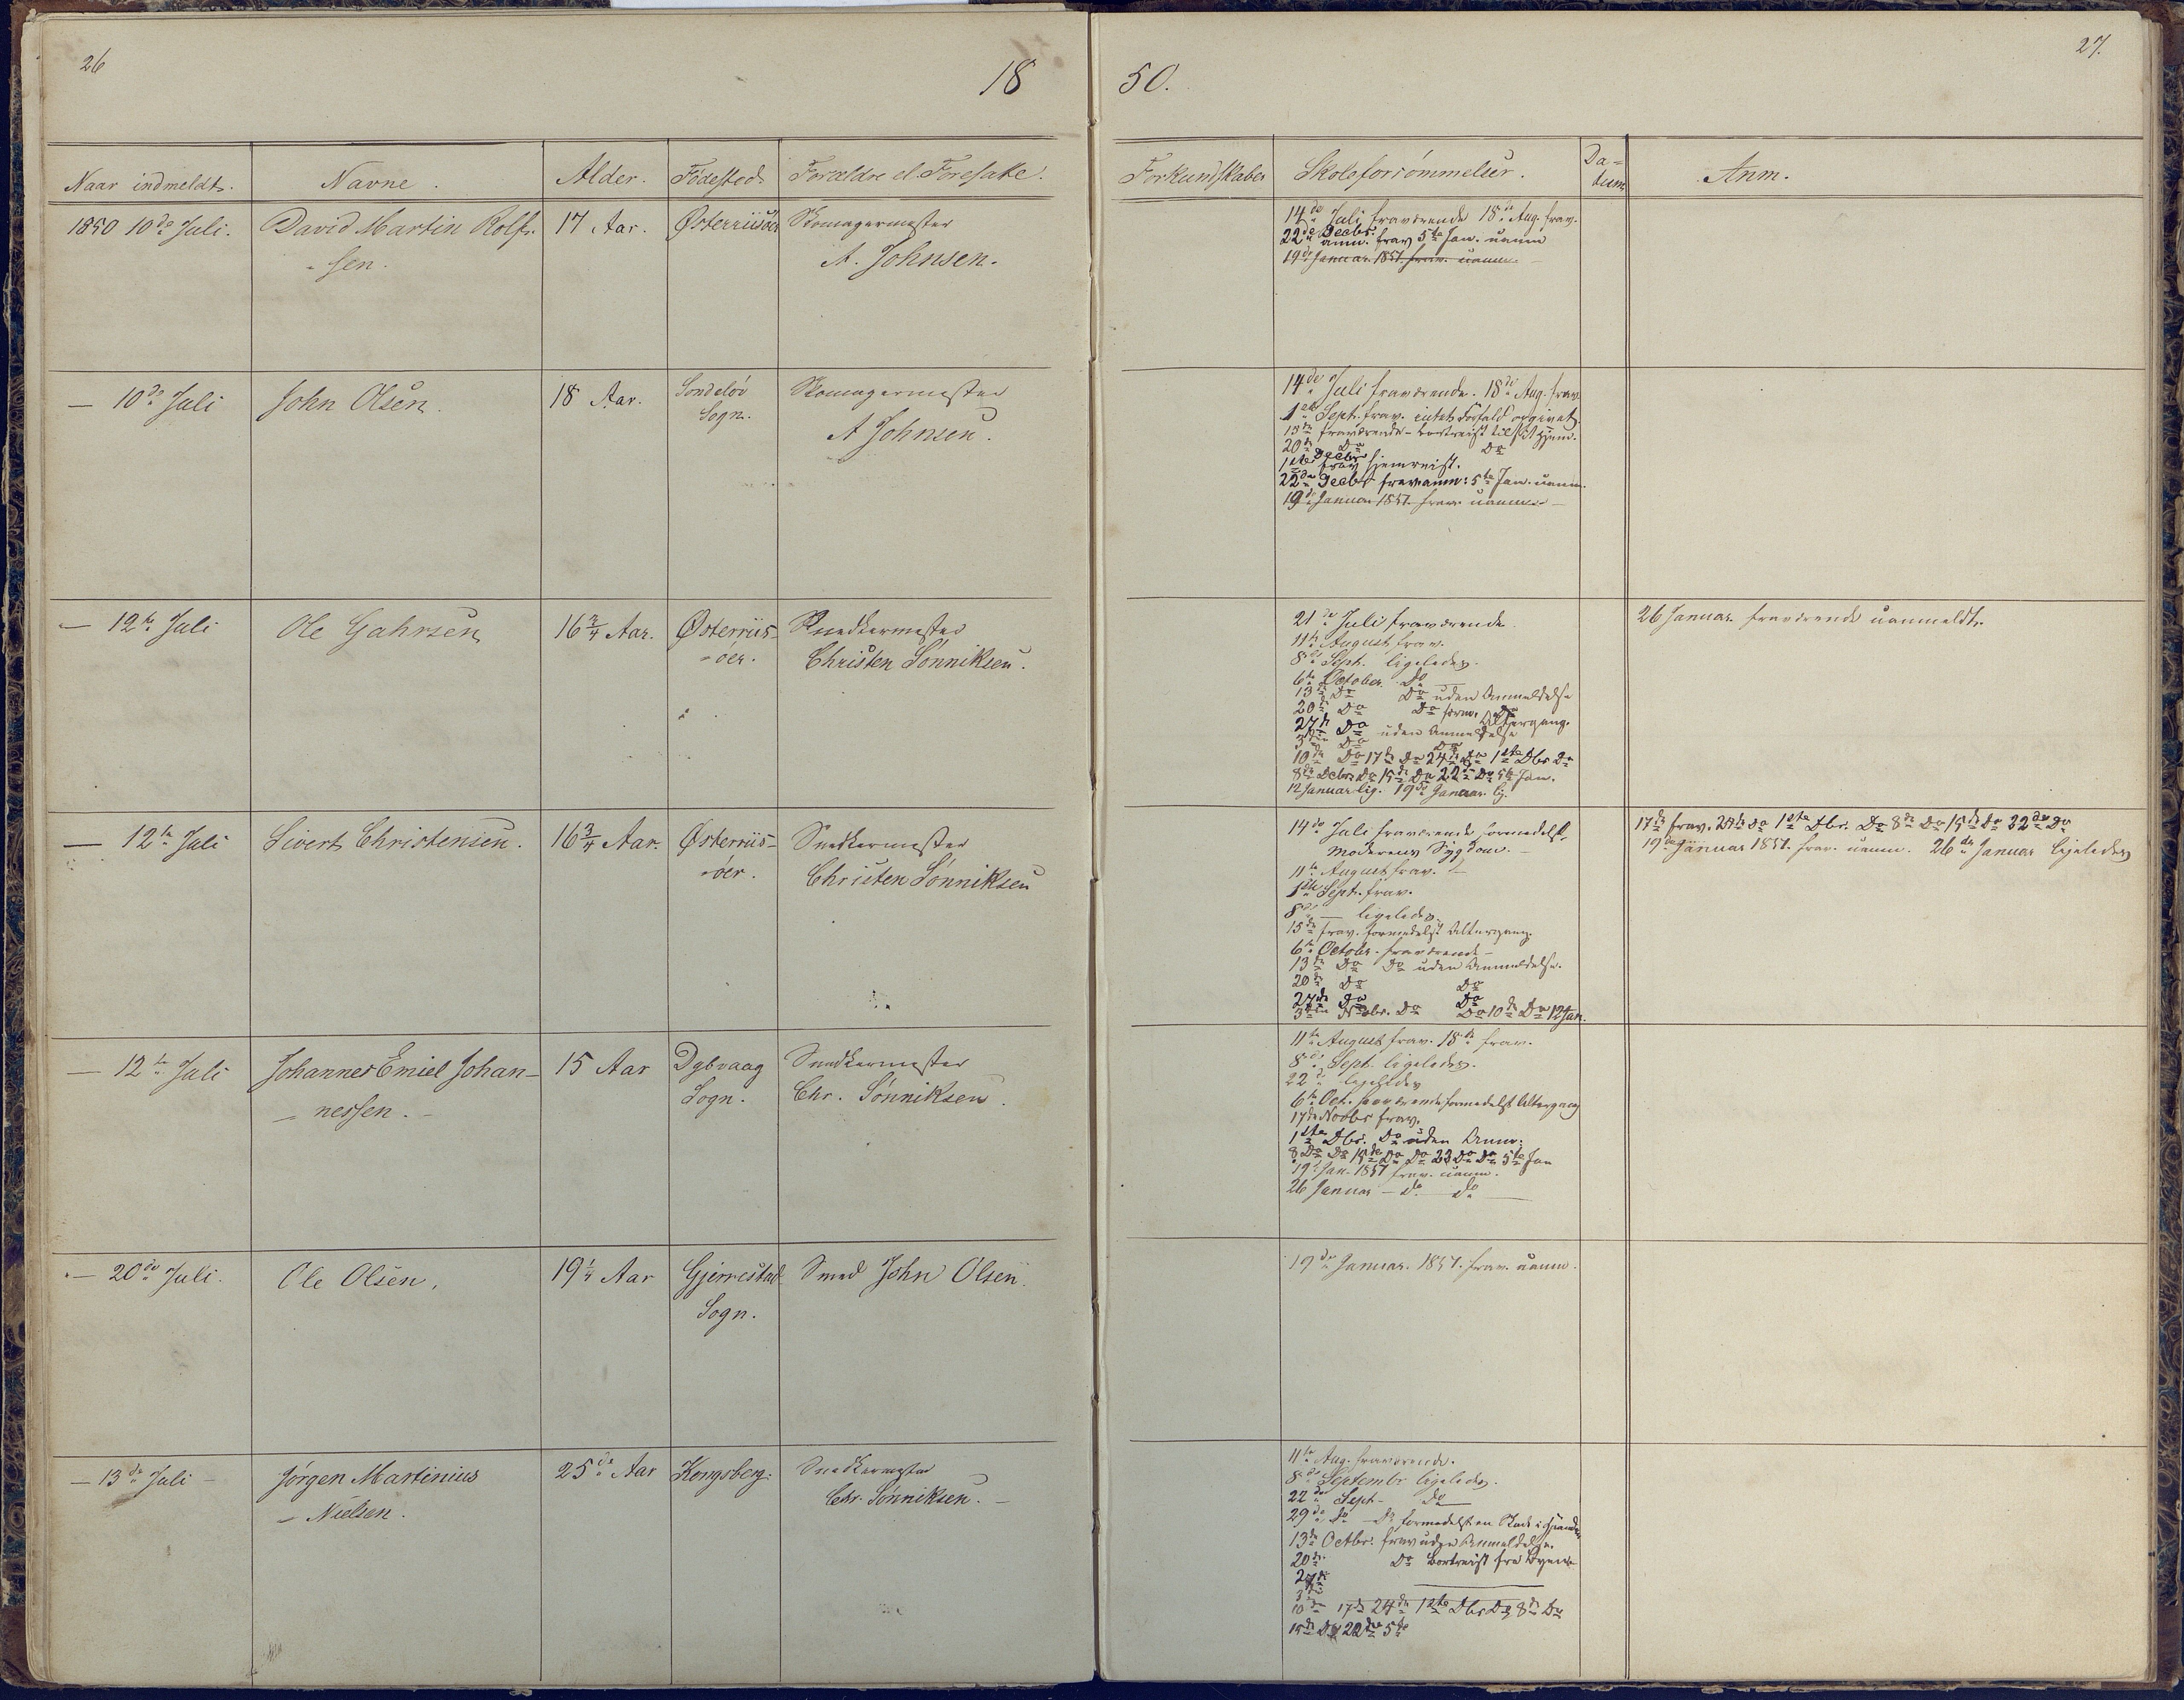 26
18
50.
27.
Naar indmeldt.
Navne.
Alder.
Födested.
Forældre el. Foresatte.
Forkundskaber
Skoleforsömmelser.
Da-
tum
Anm.
1850 10de Juli.
David Martin Rolf-
sen.
17 Aar.
Österriisöer
Skomagermester
A. Johnsen.
14de Juli fraværende 18de Aug. frav.
22de Decbr.
anm. frav 5te Jan. uanm
19de Januar 1851. frav. uanm.
— 10de Juli
John Olsen.
18 Aar.
Sondelöv
Sogn.
Skomagermester
A Johnsen.
14de Juli fraværende. 18de Aug. frav
1ste Sept. frav. intet Forfald opgivet.
15de fraværende - bortreist til sit Hjem.
20de Do Do
1ste Decbr
frav hjemreist.
22de Decbr frav anm: 5te Jan. uanm.
19de Januar 1851. frav uanm —
— 12te Juli
Ole Gahrsen
16 3/4 Aar.
Østerriis-
öer.
Snedkermester
Christen Sönniksen.
21de Juli fraværende.
11te August frav.
8de Sept. ligeledes.
6te October Do
13de Do Do uden Anmeldelse
20de Do Do form. Altergang.
27de Do uden Anmeldelse
3die Do Do
10de Do 17de Do 24de Do 1ste Dbr Do
8de Decbr Do 15de Do 22de Do 5te Jan.
12 Januar lig. 19de Januar lig.
26 Januar fraværende uanmeldt.
— 12te Juli
Sivert Christensen.
16 3/4 Aar.
Østerriis-
öer.
Snedkermester
Christen Sönniksen
14de Juli fraværende formedelst
Moderens Sygdom. —
11te August frav. —
1ste Sept. frav.
8de — ligeledes.
15de frav. formedelst Altergang.
6te October fraværende —
13de Do Do uden Anmeldelse.
20de Do Do
27de Do Do
3die Novbr. Do Do 10de Do 12 Jan.
17de frav. 24de Do 1ste Dbr. Do 8de Do 15de Do 22de Do
19de Januar 1851. frav. uanm. 26de Januar ligeledes
— 12te Juli
Johannes Emiel Johan-
nessen.
15 Aar
Dybvaag
Sogn.
Snedkermester
Chr. Sönniksen.
11te August frav. 18de frav.
8de Sept. ligeledes.
22de ligeledes
6te Oct. fraværende formedelst Altergang
17de Novbr frav.
1ste Dbr. Do uden Anm:
8 Do Do 15de Do Do 22 Do Do 5te Jan
19de Jan. 1851 frav. uanm.
26 Januar — do do —
— 20de Juli.
Ole Olsen,
19 1/4 Aar
Gjerrestad
Sogn.
Smed John Olsen.
19de Januar. 1851. frav. uanm.
— 13de Juli —
Jörgen Martinius
Nielsen.
25de Aar
Kongsberg.
Snedkermester
Chr. Sönniksen. —
11te Aug. fraværende.
8de Septembr ligeledes.
22de Sept — do
29de do — do formedelst en Skade i Haanden
13de Octbr. frav uden Anmeldelse.
20de Do Bortreist fra Byen
27de
3die
10de 17de 24de 1ste Dbr Do 8de Do
15de Do 22de 5te